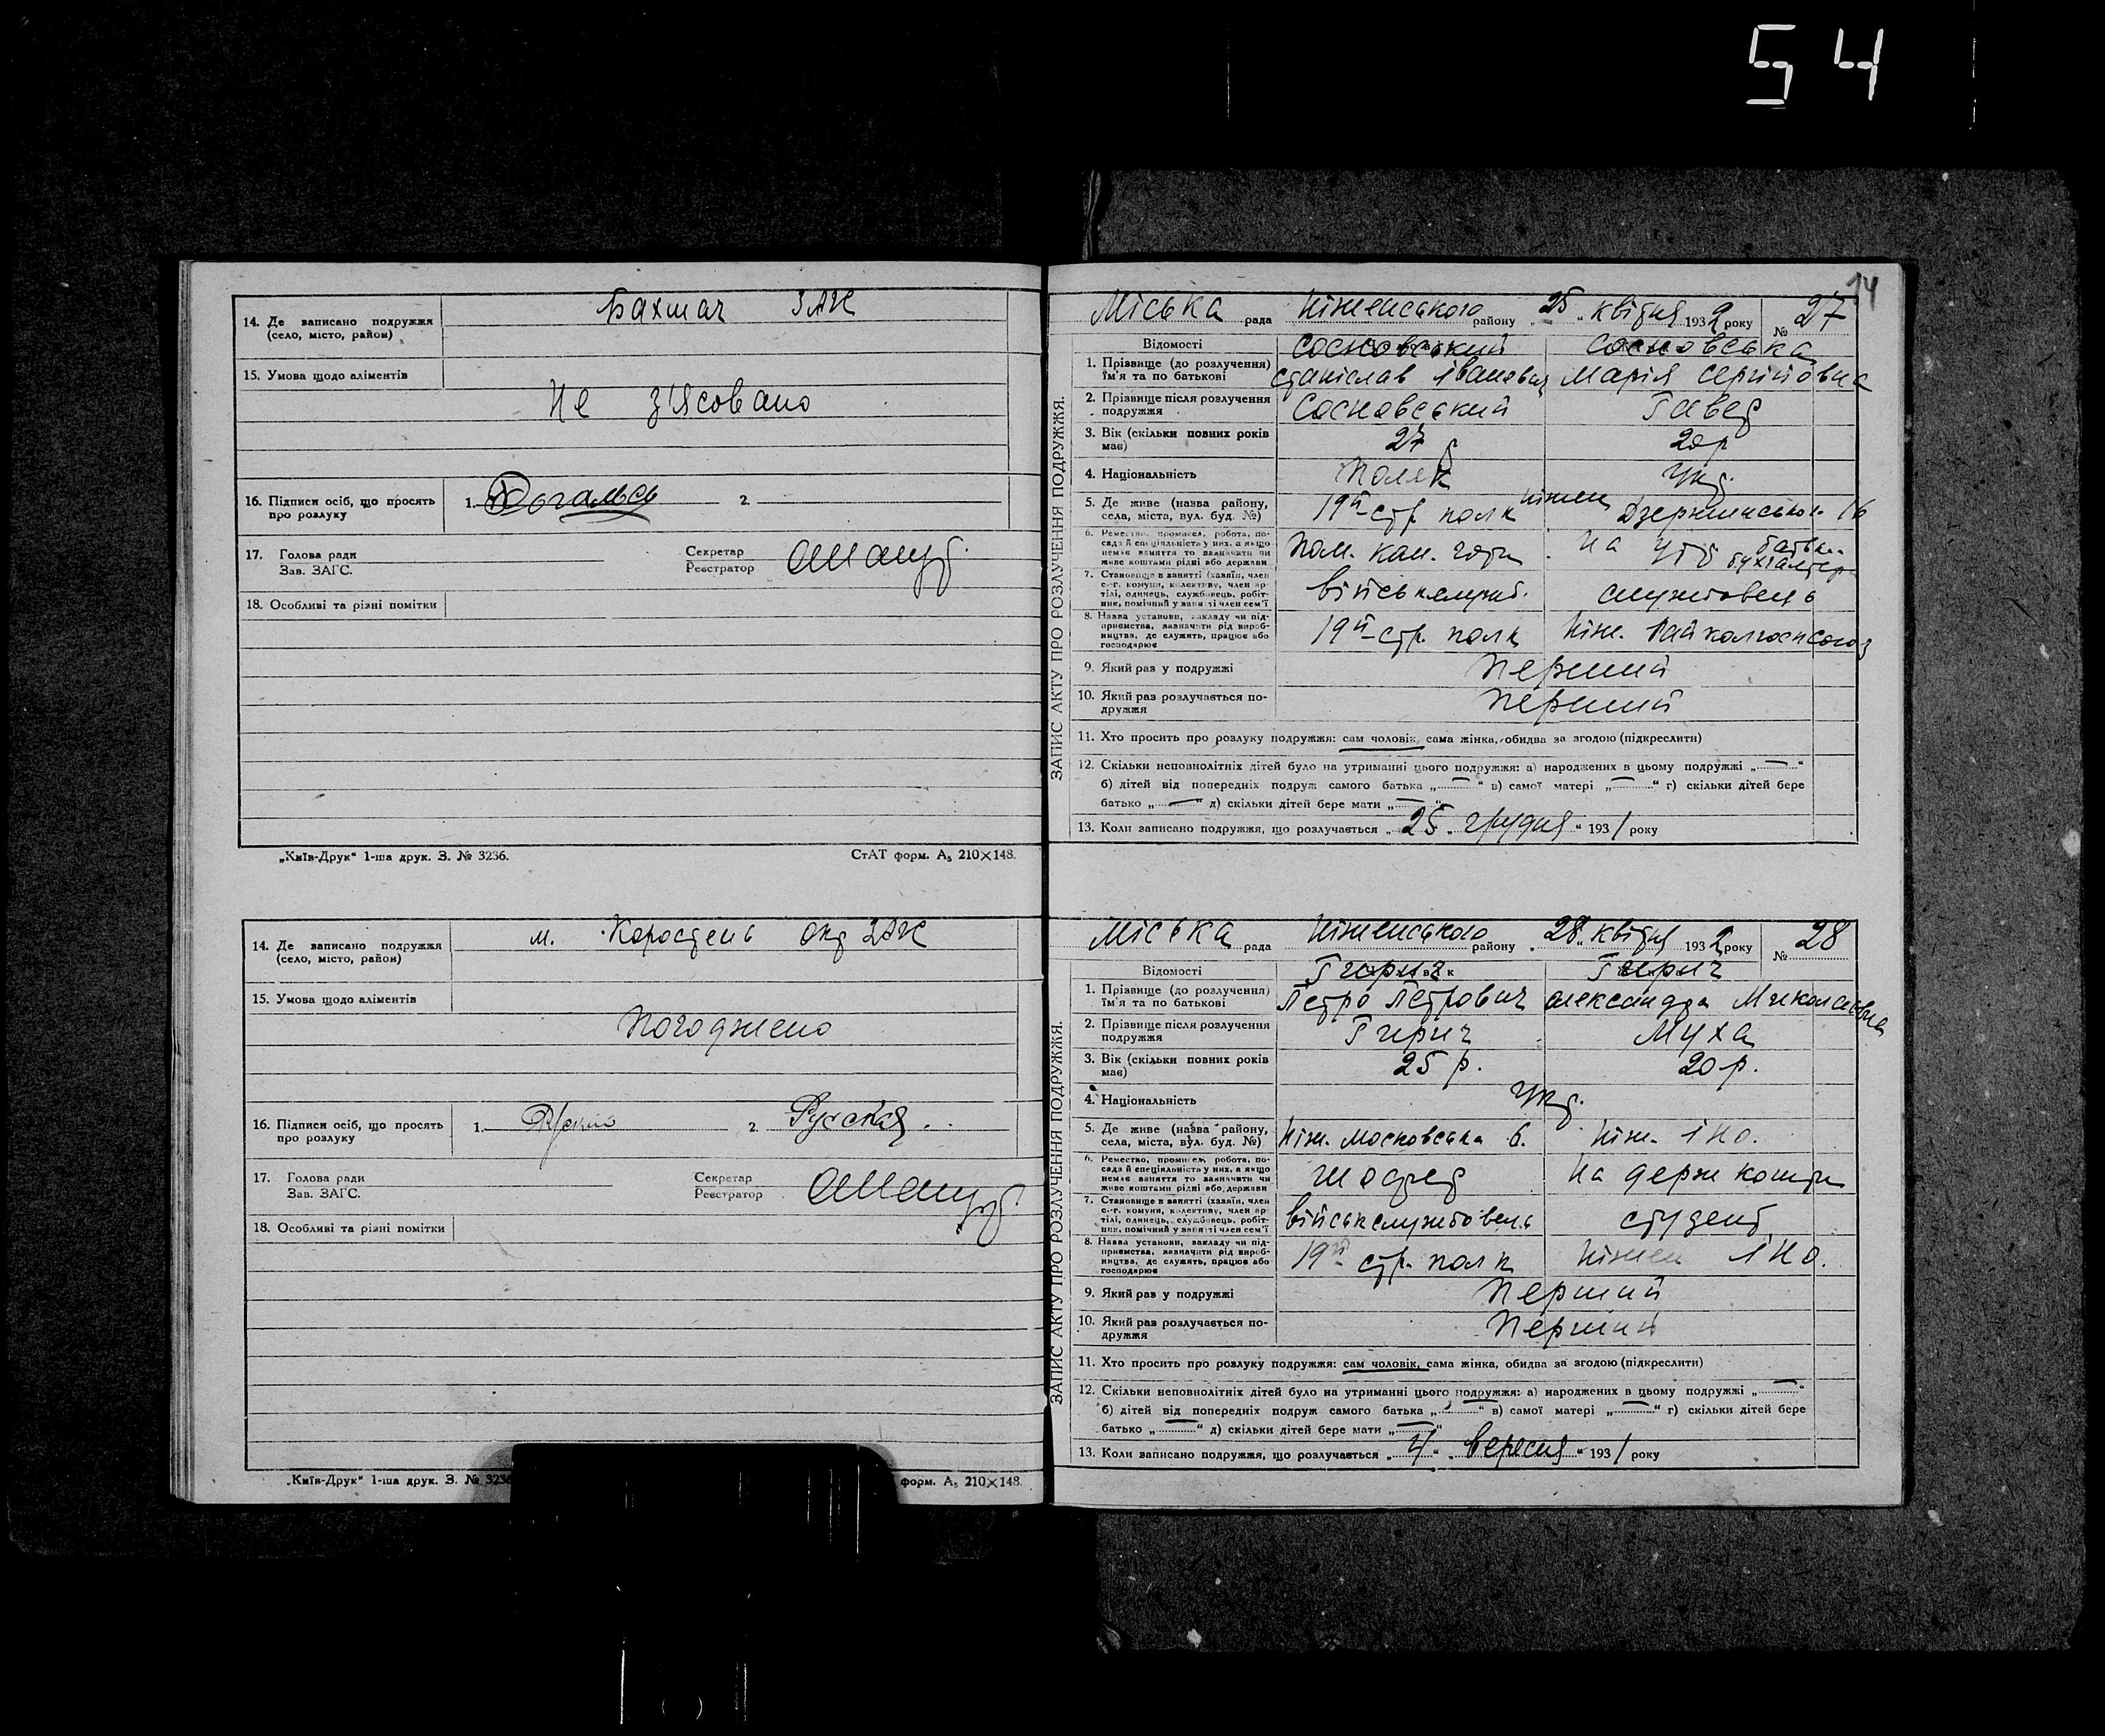 54
14. Де записано подружжя
(село, місто, район)
Бахмач ЗАГС
15. Умова щодо аліментів
Не з'ясовано
16. Підписи осіб, що просять
про розлуку
1. 2.
17. Голова ради
Зав. ЗАГС.
Секретар
Реєстратор
18. Особливі та різні помітки
„Київ-Друк“ 1-ша друк. З. № 3236.
СтАТ форм. А₅ 210×148.
14. Де записано подружжя
(село, місто, район)
м. Коростень
15. Умова щодо аліментів
Погоджено
16. Підписи осіб, що просять
про розлуку
1. 2.
17. Голова ради
Зав. ЗАГС.
Секретар
Реєстратор
18. Особливі та різні помітки
„Київ-Друк“ 1-ша друк. З. № 3236
форм. А₅ 210×148.
14
ЗАПИС АКТУ ПРО РОЗЛУЧЕННЯ ПОДРУЖЖЯ.
Міська рада Ніженського району „25“ квітня 1932 року № 27
Відомості
Сосновський Сосновська
1. Прізвище (до розлучення)
ім'я та по батькові
Станіслав Іванович Марія Сергіївна
2. Прізвище після розлучення
подружжя
Сосновський
3. Вік (скільки повних років
має)
27 20 р
4. Національність
Поляк Укр.
5. Де живе (назва району,
села, міста, вул. буд. №)
19й стр. полк Ніжен Дзержинського 16
6. Ремество, промисел, робота, по-
сада й спеціяльність у них, а якщо
немає заняття то зазначити чи
живе коштами рідні або держави
Пом. На
7. Становище в занятті (хазяїн, член
с.-г. комуни, колективу, член ар-
тілі, одинець, службовець, робіт-
ник, помічний у занятті член сем'ї
військслужб. службовець
8. Назва установи, закладу чи під-
приємства, зазначити рід вироб-
ництва, де служить, працює або
господарює
19й стр. полк Ніж. Райколгоспсоюз
9. Який раз у подружжі
Перший
10. Який раз розлучається по-
дружжя
Перший
11. Хто просить про розлуку подружжя: сам чоловік, сама жінка, обидва за згодою (підкреслити)
12. Скільки неповнолітніх дітей було на утриманні цього подружжя: а) народжених в цьому подружжі „—“
б) дітей від попередніх подруж самого батька „—“ в) самої матері „—“ г) скільки дітей бере
батько „—“ д) скільки дітей бере мати „—“
13. Коли записано подружжя, що розлучається „25“ грудня 1931 року
ЗАПИС АКТУ ПРО РОЗЛУЧЕННЯ ПОДРУЖЖЯ.
Міська рада Ніженського району „28“ квітня 1932 року № 28
Відомості
Гирич Гирич
1. Прізвище (до розлучення)
ім'я та по батькові
Петро Петрович Олександра Миколаївна
2. Прізвище після розлучення
подружжя
Гирич Муха
3. Вік (скільки повних років
має)
25 р. 20 р.
4. Національність
Укр.
5. Де живе (назва району,
села, міста, вул. буд. №)
Ніж. Московська 6. Ніж. ІНО.
6. Ремество, промисел, робота, по-
сада й спеціяльність у них, а якщо
немає заняття то зазначити чи
живе коштами рідні або держави
шофер На держ кошти
7. Становище в занятті (хазяїн, член
с.-г. комуни, колективу, член ар-
тілі, одинець, службовець, робіт-
ник, помічний у занятті член сем'ї
військслужбовець студент
8. Назва установи, закладу чи під-
приємства, зазначити рід вироб-
ництва, де служить, працює або
господарює
19й стр. полк Ніжен ІНО.
9. Який раз у подружжі
Перший
10. Який раз розлучається по-
дружжя
Перший
11. Хто просить про розлуку подружжя: сам чоловік, сама жінка, обидва за згодою (підкреслити)
12. Скільки неповнолітніх дітей було на утриманні цього подружжя: а) народжених в цьому подружжі „—“
б) дітей від попередніх подруж самого батька „—“ в) самої матері „—“ г) скільки дітей бере
батько „—“ д) скільки дітей бере мати „—“
13. Коли записано подружжя, що розлучається „4“ вересня 1931 року